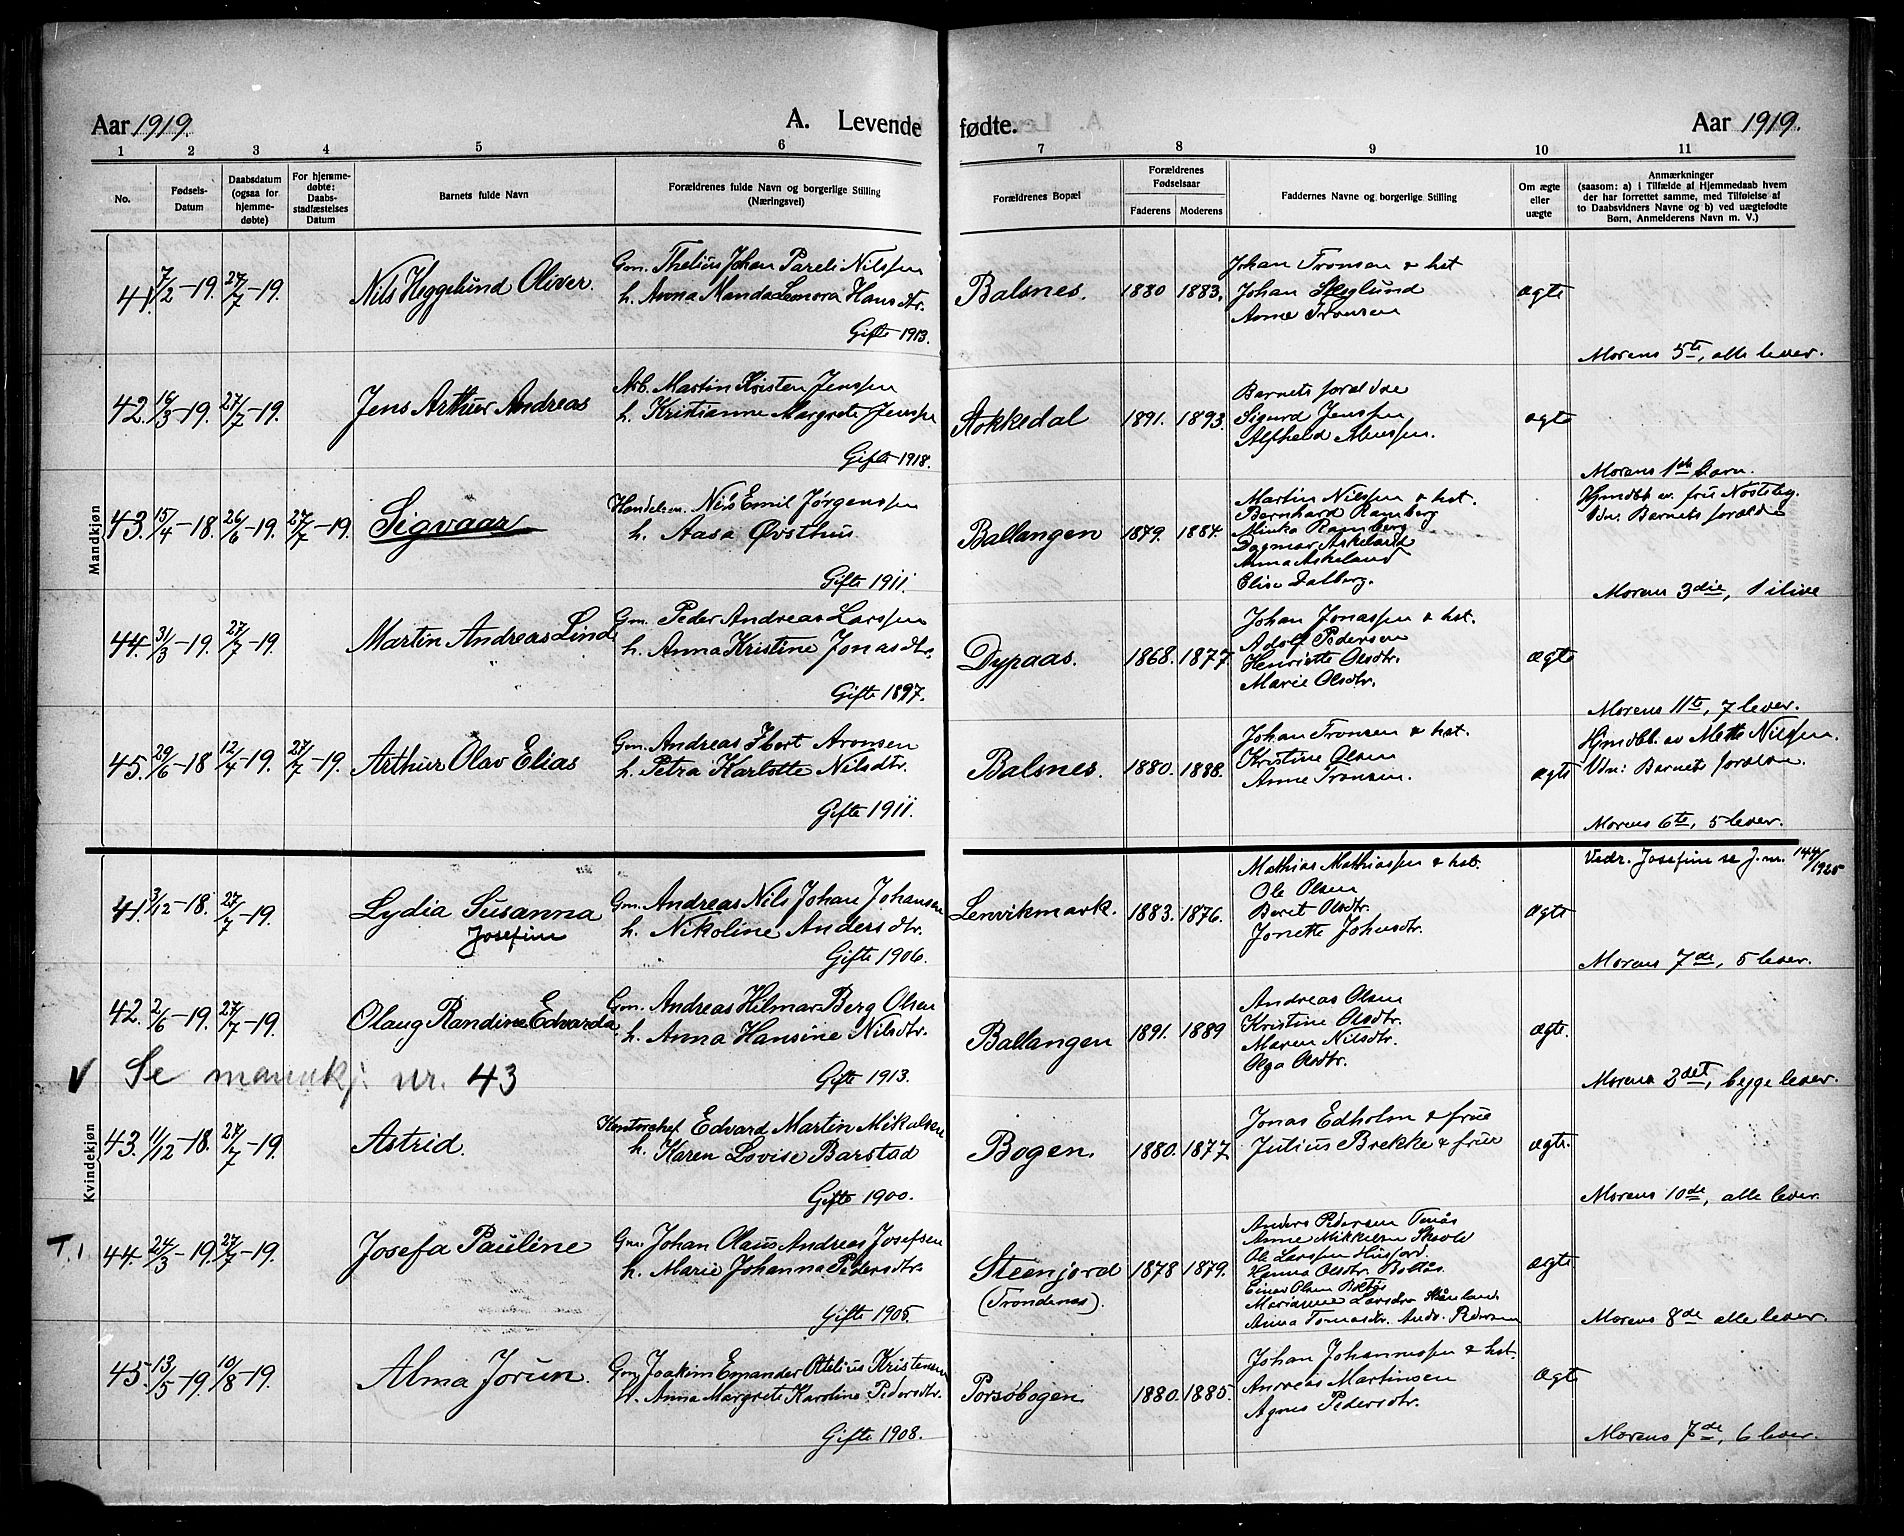 Aar 1919.
A. Levende fødte.
Aar 1919.
1 2 3 4 5 6 7 8 9 10 11
No.
Fødsels-
Datum
Daabsdatum
(ogsaa for
hjemme-
døbte)
For hjemme-
døbte:
Daabs-
stadfæstelses
Datum
Barnets fulde Navn
Forældrenes fulde Navn og borgerlige Stilling
(Næringsvei)
Forældrenes Bopæl
Forældrenes
Fødselsaar
Faderens Moderens
Faddernes Navne og borgerlige Stilling
Om ægte
eller
uægte
Anmærkninger
(saasom: a) i Tilfælde af Hjemmedaab hvem
der har forrettet samme, med Tilføielse af
to Daabsvidners Navne og b) ved uægtefødte
Børn, Anmelderens Navn m. V.)
Mandkjøn
41. 7/2-19. 27/7-19. Nils Heggelund Oliver
Gm. Thelius Johan Pareli Nilssen
h. Anna Manda Leonora Hansdtr.
Gifte 1913.
Balsnes. 1880 1883.
Johan Tronsen & hst
Johan
Anne Tronsen
ægte
Morens 5te, alle lever.
42. 18/3-19. 27/7-19. Jens Arthur Andreas
Arb. Martin Kristen Jenssen
h. Kristianne Margrete Jenssen
Gifte 1918.
Stokkedal 1891. 1893.
Barnets foreldre
Sigurd Jenssen
Alfheld
ægte
Morens 1ste barn.
43. 15/4-18. 26/6-19. 27/7-19. Sigvaar
Handelsm. Nils Emil Jørgenssen
h. Aasa Øvsthus
Gifte 1911.
Ballangen 1879. 1884.
Martin Nilssen & hst.
Bernhard Ramberg
Minka Ramberg
Dagmar Askeland
Anna Askeland
Elise Dalberg.
Hjmdbt. av fru
Vdn. Barnets foreldre
Morens 3die, 1 ilive
44. 31/3-19. 27/7-19. Martin Andreas Lind
Gm. Peder Andreas Larssen
h. Anna Kristine Jonasdtr.
Gifte 1897.
Dypaas. 1868. 1877.
Johan Jonassen & hst.
Adolf Pedersen
Henriette Olsdtr.
Marie Olsdtr.
ægte
Morens 11te, 7 lever.
45. 29/6-18 12/4-19. 27/7-19. Arthur Olav Elias
Gm. Andreas Ibert Aronsen
h. Petra Karlotte Nilsdtr.
Gifte 1911.
Balsnes. 1880. 1888.
Johan Tronsen & hst.
Kristine Olsen
Anne Tronsen.
ægte
Hjmdbt. av Mette Nilssen.
Vdn: Barnets foreldre.
Morens 6te, 5 lever.
Kvindekjøn
41. 3/12-18. 27/7-19. Lydia Susanna
Josefine
Gm. Andreas Nils Johan Johansen
h. Nikoline Andersdtr.
Gifte 1906.
Lenvikmark. 1883. 1876.
Mathias Mathiassen & hst.
Ole Olsen
Berit Olsdtr.
Jonette Johnsdtr.
ægte
Vedr. Josefine se J.nr. 144/1925
Morens 7de, 5 lever.
42. 2/6-19. 27/7-19. Olaug Randine Edvarda
Gm. Andreas Hilmar Berg Olsen
h. Anna Hansine Nilsdtr.
Gifte 1913.
Ballangen 1891. 1889
Andreas Olsen
Kristine Olsdtr.
Maren Nilsdtr.
Olga Olsdtr.
ægte
Morens 2det, begge lever.
V Se mannkj. nr. 43
43. 11/12-18. 27/7-19. Astrid.
Kontorchef Edvard Martin Mikalsen
h. Karen Lovise Barstad
Gifte 1900.
Bogen. 1880. 1877.
Jonas Edholm & frue
Julius Brekke & frue
ægte.
Morens 10de, alle lever.
T.1 44. 24/3-19. 27/7-19. Josefa Pauline
Gm. Johan Olaus Andreas Josefsen
h. Marie Johanna Pedersdtr.
Gifte 1905.
Steenjord
(Trondenes).
1878 1879.
Anders Pedersen
Anne Mikkelsen
Ole Larssen Husjord.
Hanna Olsdtr. Boltås.
Einar Olsen Boltås
Marianne Larsdtr.
Anna Tomasdtr. Andr. Pedersen
ægte
Morens 8de alle lever.
45. 13/5-19. 10/8-19. Alma Jorun.
Gm. Joakim Emander Otelius Kristensen
h. Anna Margrete Karoline Pedersdtr.
Gifte 1908.
Porsøbogen 1880. 1885.
Johan Johannessen & hst.
Andreas Martinsen
Agnes Pedersdtr.
Ægte
Morens 7de, 6 lever.